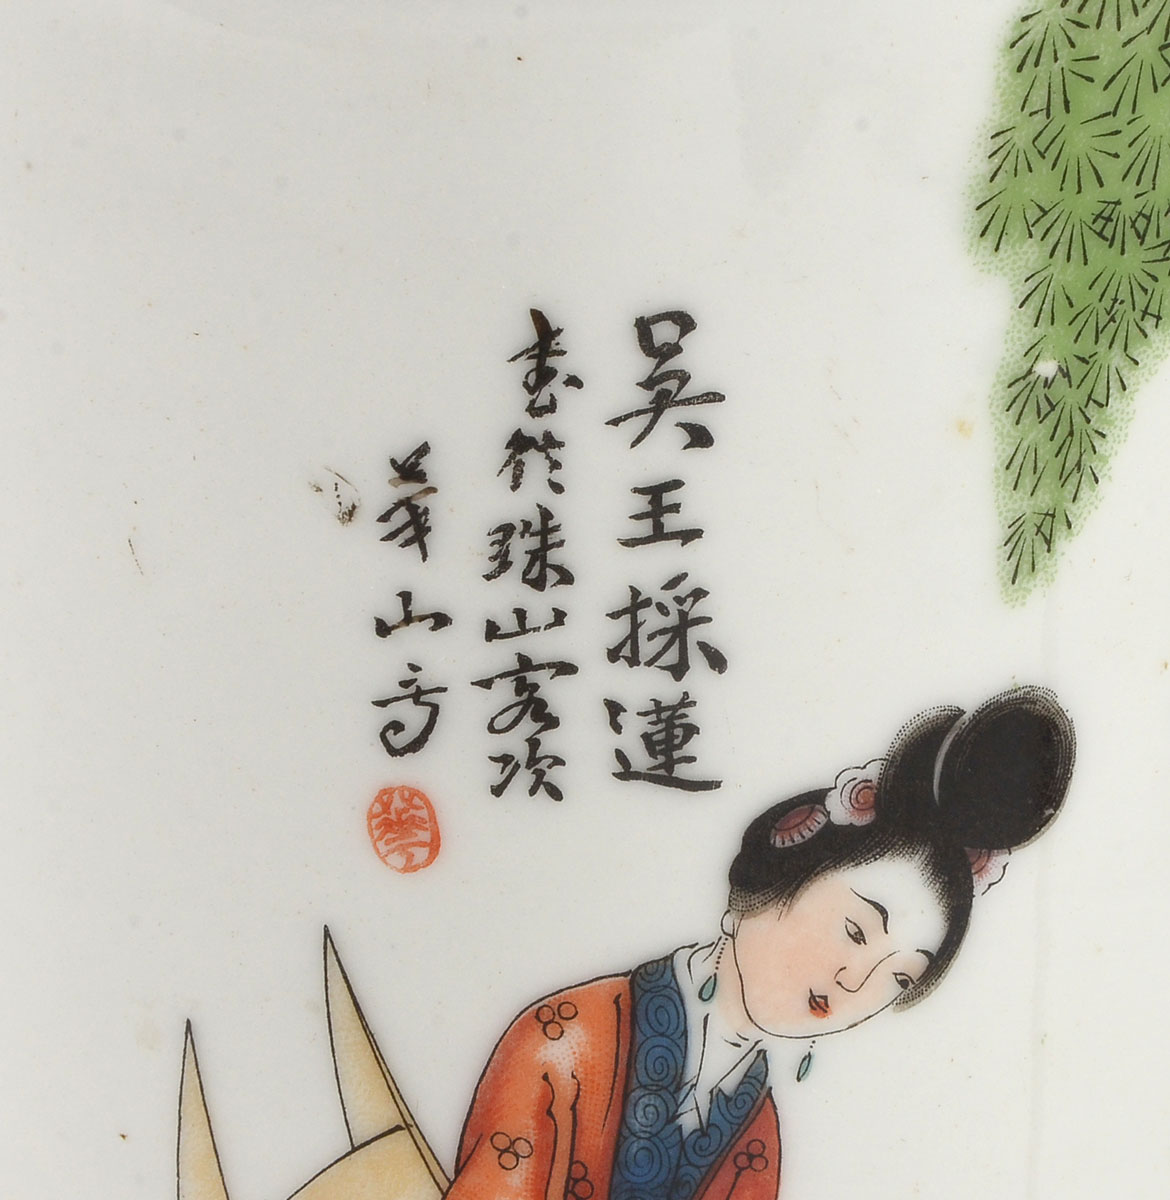 吳王採蓮
畫於珠山客次
華山亭